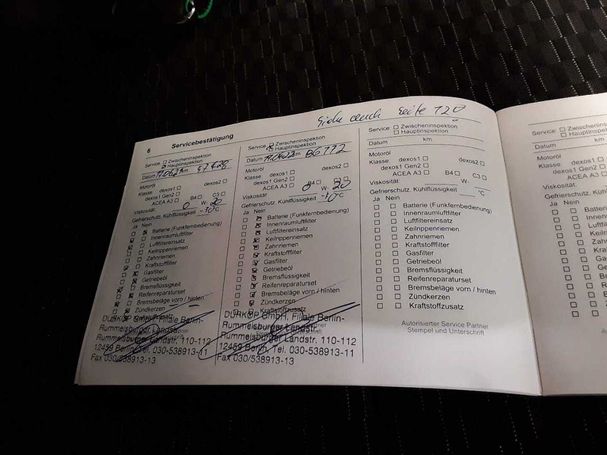 Siehe auch Seite 120
6 Servicebestätigung
Service Zwischeninspektion
Hauptinspektion
Datum km
Motoröl
Klasse: dexos1 dexos2
dexos1 Gen2
ACEA A3 B4 C3
Viskosität: 0 W- 30
Gefrierschutz, Kühlflüssigkeit °C
Ja Nein
Batterie (Funkfernbedienung)
Innenraumluftfilter
Luftfiltereinsatz
Keilrippenriemen
Zahnriemen
Kraftstofffilter
Gasfilter
Getriebeöl
Bremsflüssigkeit
Reifenreparaturset
Bremsbeläge vorn / hinten
Zündkerzen
Filiale Berlin-
Rummelsburger Landstr.
Rummelsburger Landstr. 110-112
12459 Berlin, Tel. 030-538913-11
Fax 030/538913-13
Service Zwischeninspektion
Hauptinspektion
Datum km 86772
Motoröl
Klasse: dexos1 dexos2
dexos1 Gen2
ACEA A3 B4 C3
Viskosität: 0 W- 30
Gefrierschutz, Kühlflüssigkeit °C
Ja Nein
Batterie (Funkfernbedienung)
Innenraumluftfilter
Luftfiltereinsatz
Keilrippenriemen
Zahnriemen
Kraftstofffilter
Gasfilter
Getriebeöl
Bremsflüssigkeit
Reifenreparaturset
Bremsbeläge vorn / hinten
Zündkerzen
Kraftstoffzusatz
GmbH, Filiale Berlin-
Rummelsburger Landstr.
Rummelsburger Landstr. 110-112
12459 Berlin, Tel. 030-538913-11
Fax 030/538913-13
Service Zwischeninspektion
Hauptinspektion
Datum km
Motoröl
Klasse: dexos1 dexos2
dexos1 Gen2
ACEA A3 B4 C3
Viskosität: W-
Gefrierschutz, Kühlflüssigkeit °C
Ja Nein
Batterie (Funkfernbedienung)
Innenraumluftfilter
Luftfiltereinsatz
Keilrippenriemen
Zahnriemen
Kraftstofffilter
Gasfilter
Getriebeöl
Bremsflüssigkeit
Reifenreparaturset
Bremsbeläge vorn / hinten
Zündkerzen
Kraftstoffzusatz
Autorisierter Service Partner
Stempel und Unterschrift
Service
Datum
Motoröl
Klasse:
Viskosität:
Gefrierschutz
Ja Nein